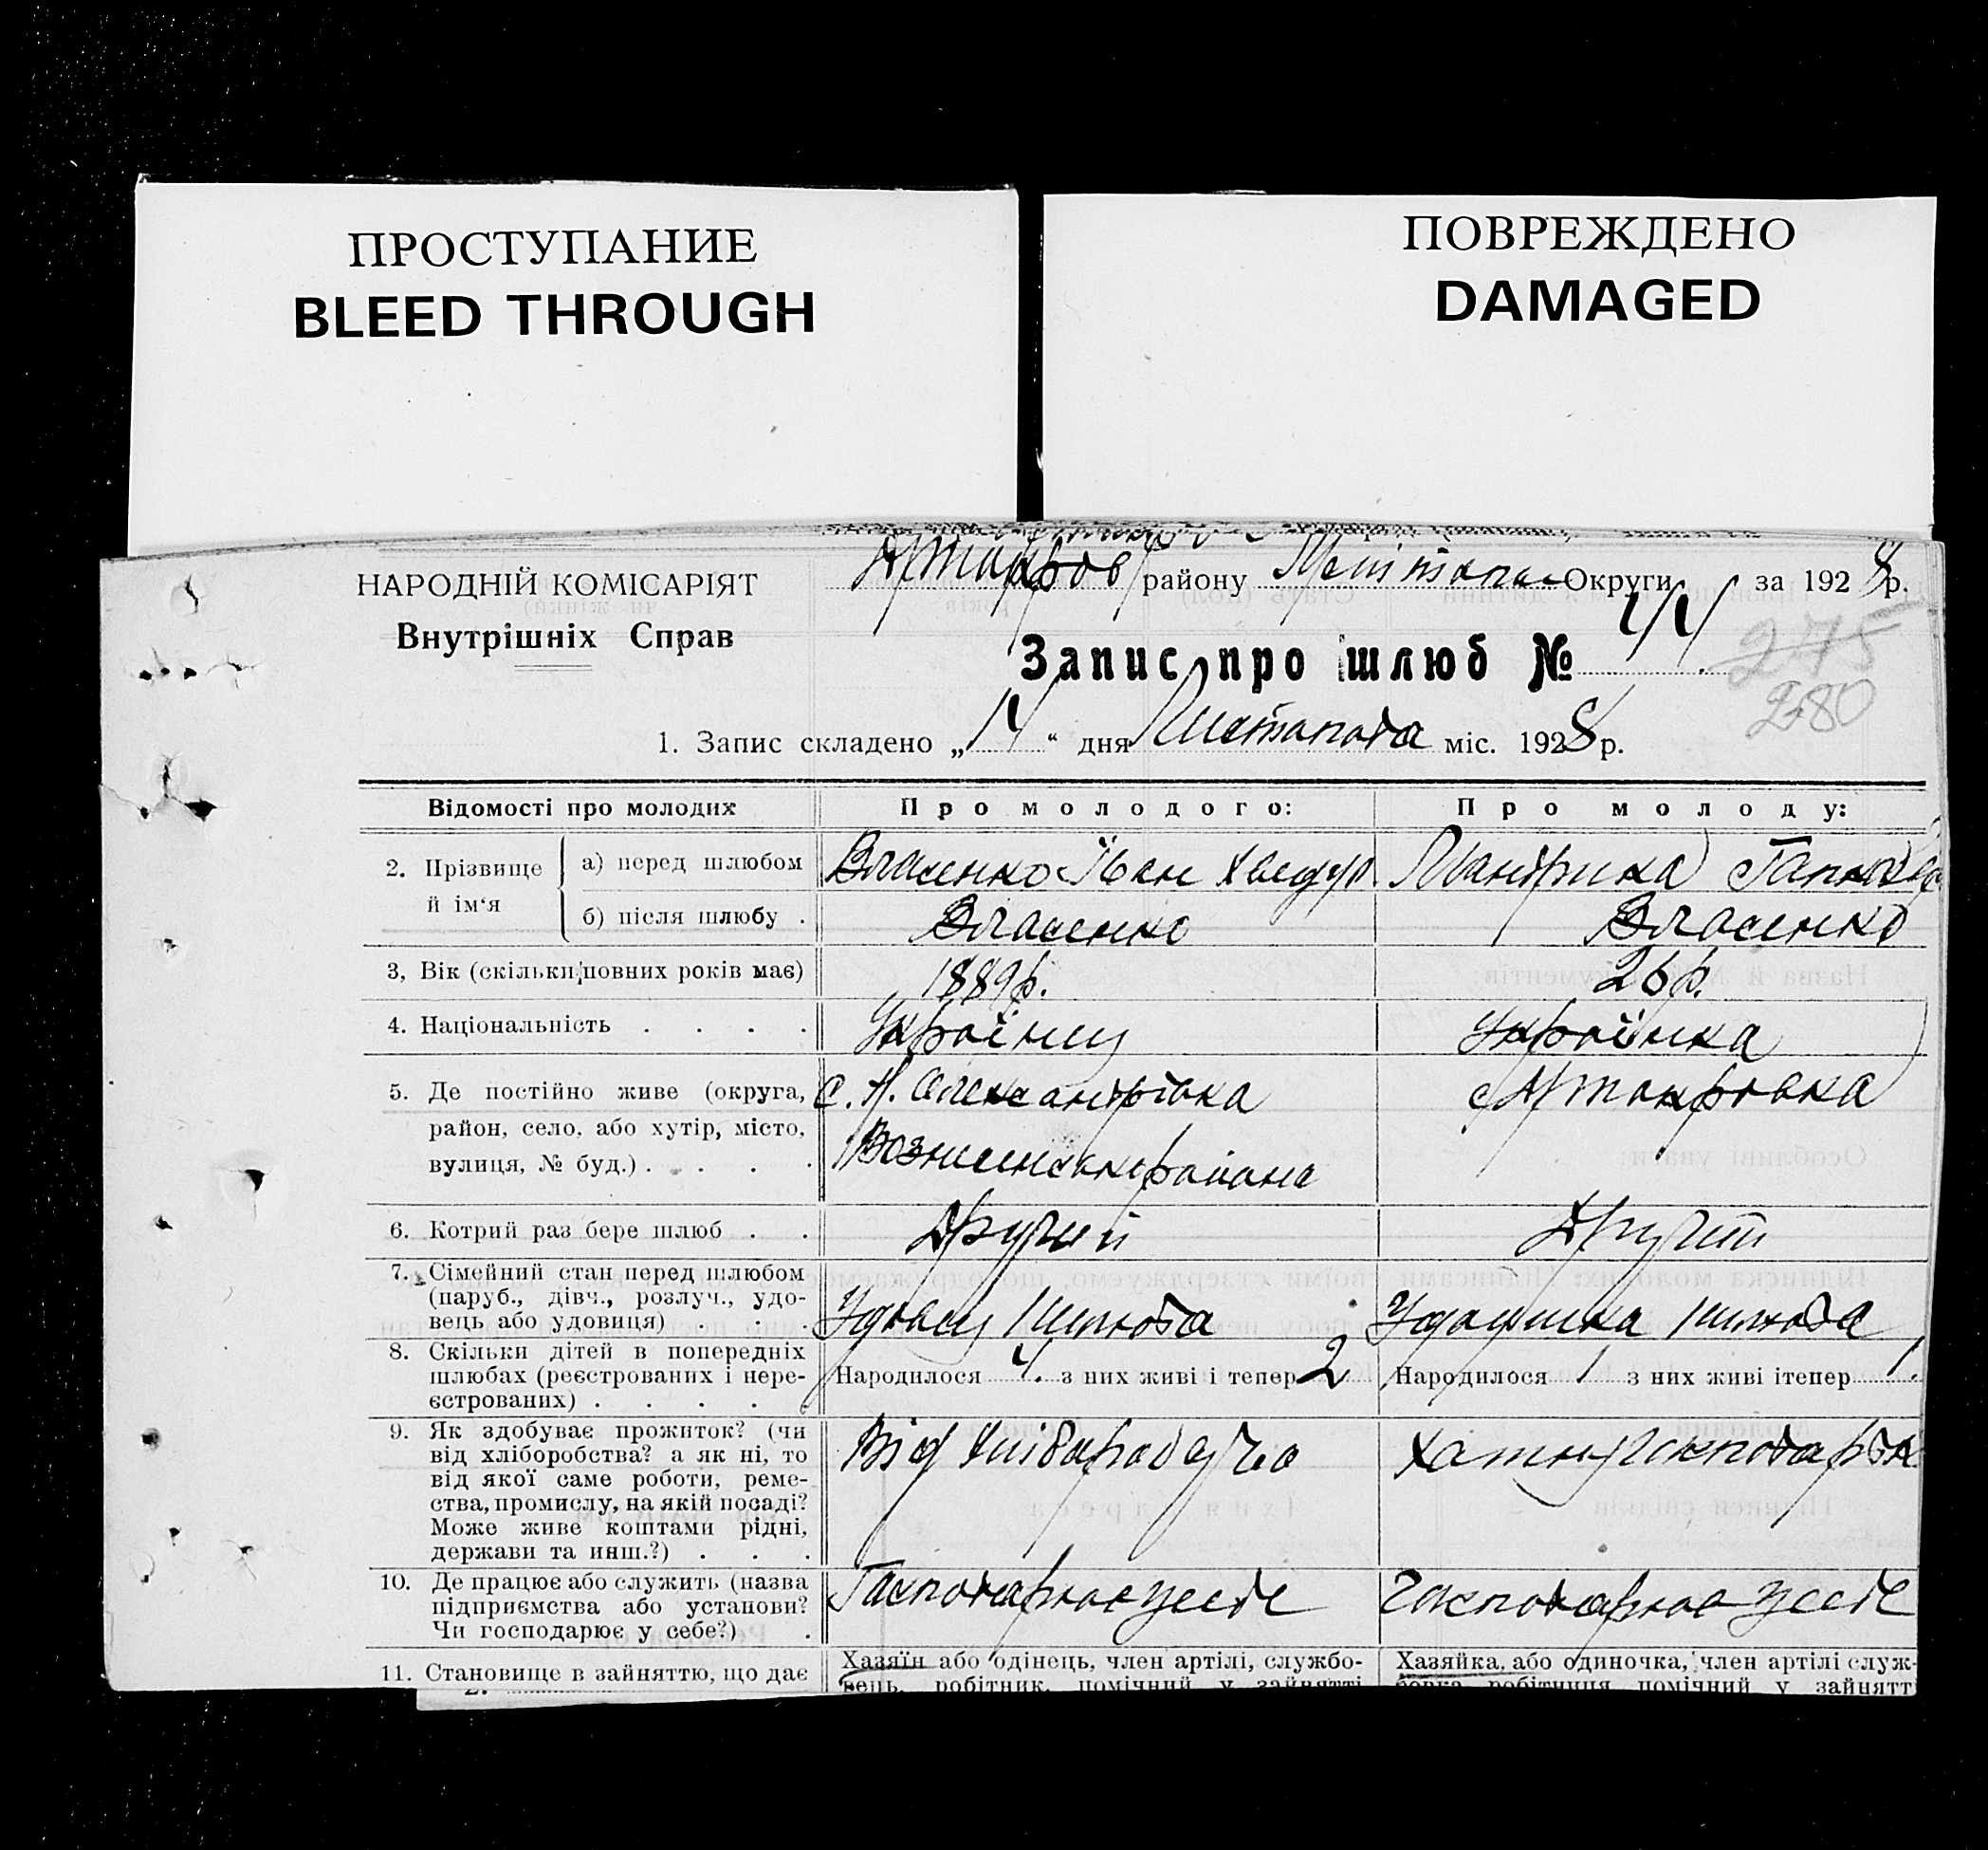 ПРОСТУПАНИЕ
BLEED THROUGH
ПОВРЕЖДЕНО
DAMAGED
НАРОДНІЙ КОМІСАРІЯТ
Внутрішніх Справ
району Округи за 1928 р.
Запис про шлюб №
275
280
1. Запис складено „14“ дня Листопада міс. 1928 р.
Відомості про молодих Про молодого: Про молоду:
2. Прізвище й ім‘я
а) перед шлюбом Власенко Іван Хведур
б) після шлюбу . Власенко Власенко
3, Вік (скільки повних років має) 1889р. 26р.
4. Національність . . . . Українец Українка
5. Де постійно живе (округа, район, село, або хутір, місто, вулиця, № буд.) . . . .
с. Н. Олександрівка
Вознесенск района
6. Котрий раз бере шлюб . . Другий Другий
7. Сімейний стан перед шлюбом
(паруб., дівч., розлуч., удо-
вець або удовиця) . . .
8. Скільки дітей в попередніх
шлюбах (реєстрованих і нере-
єстрованих) . . . . .
Народилося 4. з них живі і тепер 2
Народилося 1 з них живі ітепер 1.
9. Як здобуває прожиток? (чи
від хліборобства? а як ні, то
від якої саме роботи, реме-
ства, промислу, на якій посаді?
Може живе коштами рідні,
держави та инш.?) . . .
Від
10. Де працює або служить (назва
підприємства або установи?
Чи господарює у себе?) .
Господарює у себе господарює у себе
11. Становище в зайняттю, що дає
Хазяїн або одінець, член артілі, службо-
вець, робітник, помічний у зайнятті
Хазяйка, або одиночка, член артілі служ-
бовка робітниця помічний у зайнятті